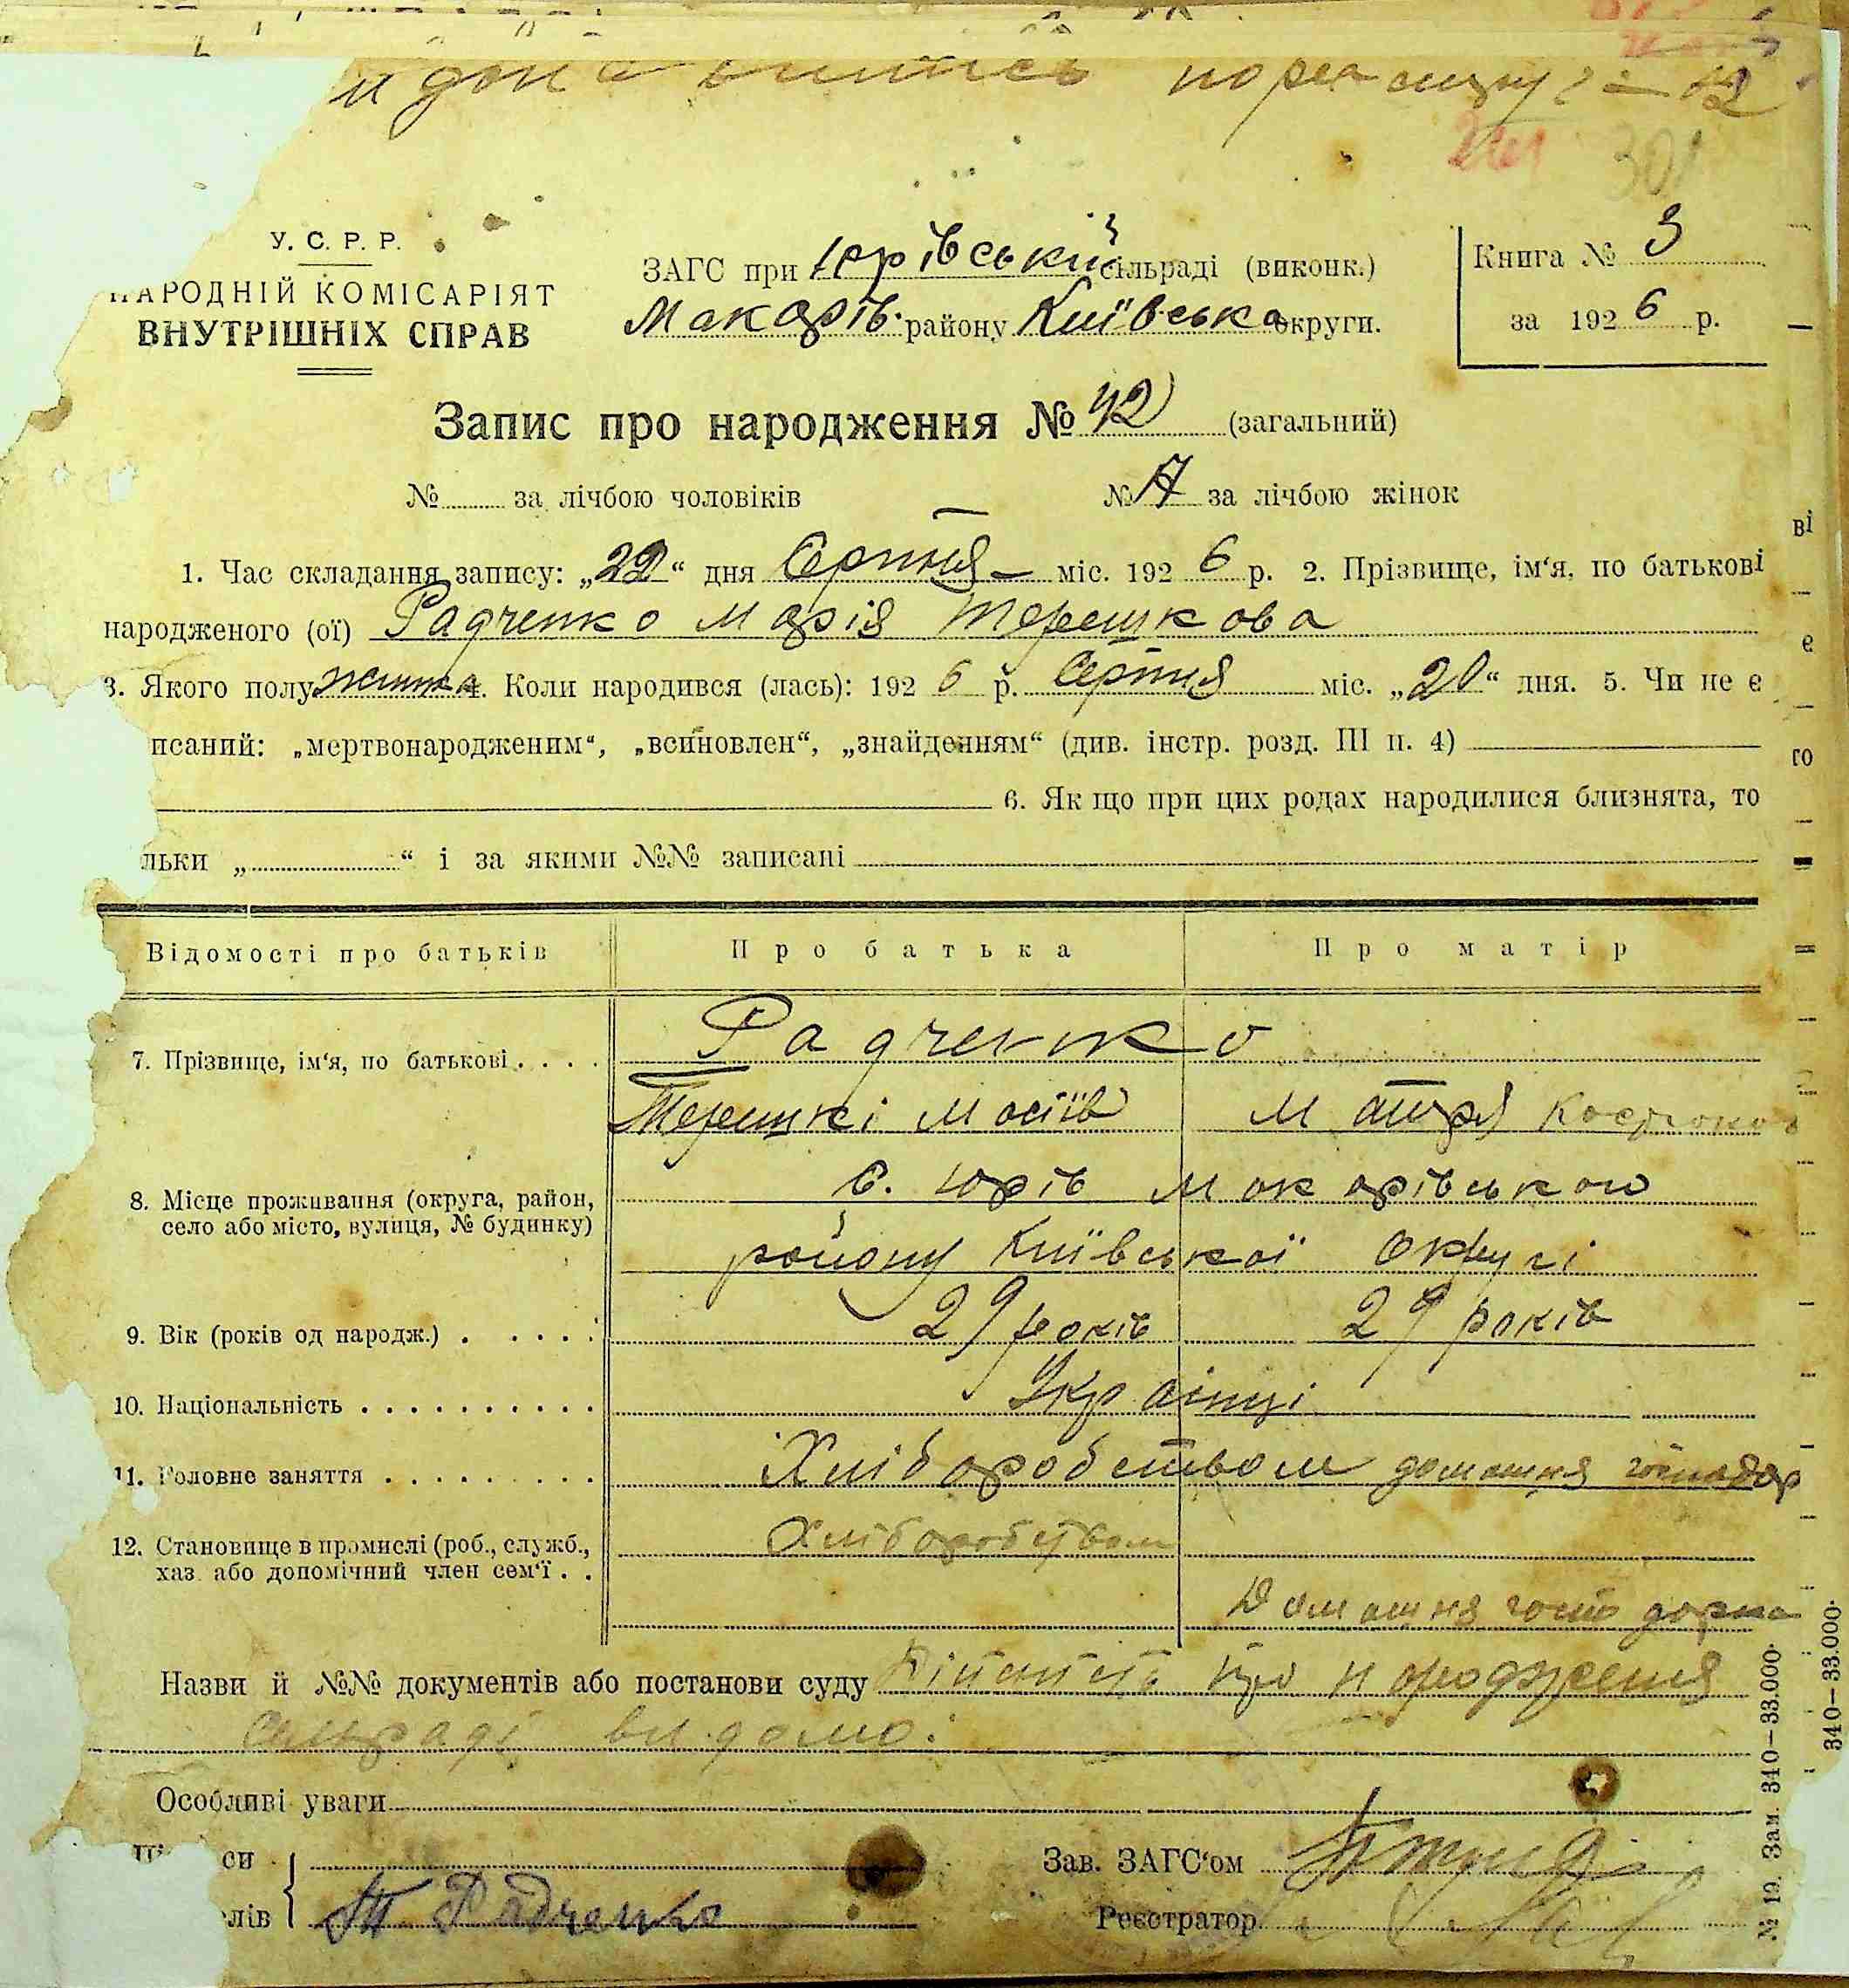 301
У. С. Р. Р.
НАРОДНІЙ КОМІСАРІЯТ
ВНУТРІШНІХ СПРАВ
ЗАГС при Юрівський сільраді (виконк.)
Макарів. району Київська округи.
Книга № 3
за 192 6 р.
Запис про народження № 42 (загальний)
№ за лічбою чоловіків № за лічбою жінок
1. Час складання запису: „22“ дня Серпня міс. 192 6 р. 2. Прізвище, ім‘я, по батькові
народженого (ої) Радченко Марія Терешкова
3. Якого полу жинка 4. Коли народився (лась): 192 6 р. Серпня міс. „20“ дня. 5. Чи не є
писаний: „мертвонародженим“, „всиновлен“, „знайденням“ (див. інстр. розд. III п. 4)
6. Як що при цих родах народилися близнята, то
льки „ “ і за якими №№ записані
Відомості про батьків Про батька Про матір
7. Прізвище, ім‘я, по батькові Радченко
Терешкі Мосіїв Мотря
8. Місце проживання (округа, район,
село або місто, вулиця, № будинку)
с. Юрів Макарівського
району Київської Округі
9. Вік (років од народж.) 29 років 29 років
10. Національність Українці
11. Головне заняття Хліборобством домашня господар
12. Становище в промислі (роб., служб.,
хаз. або допомічний член сем‘ї
Хліборобством
Домашня господарка
Назви й №№ документів або постанови суду про народження
сильраді видомо.
Особливі уваги
си
лів Т Радченко
Зав. ЗАГС‘ом
Реєстратор
№ 19. Зам. 340—33.000·
340—33.000·